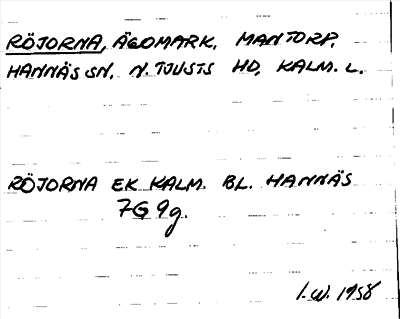 RÖJORNA, ÄGOMARK, MANTORP,
HANNÄS SN, N. TJUSTS HD, KALM. L.
RÖJORNA EK KALM. BL. HANNÄS
7G 9g.
I.W. 1958